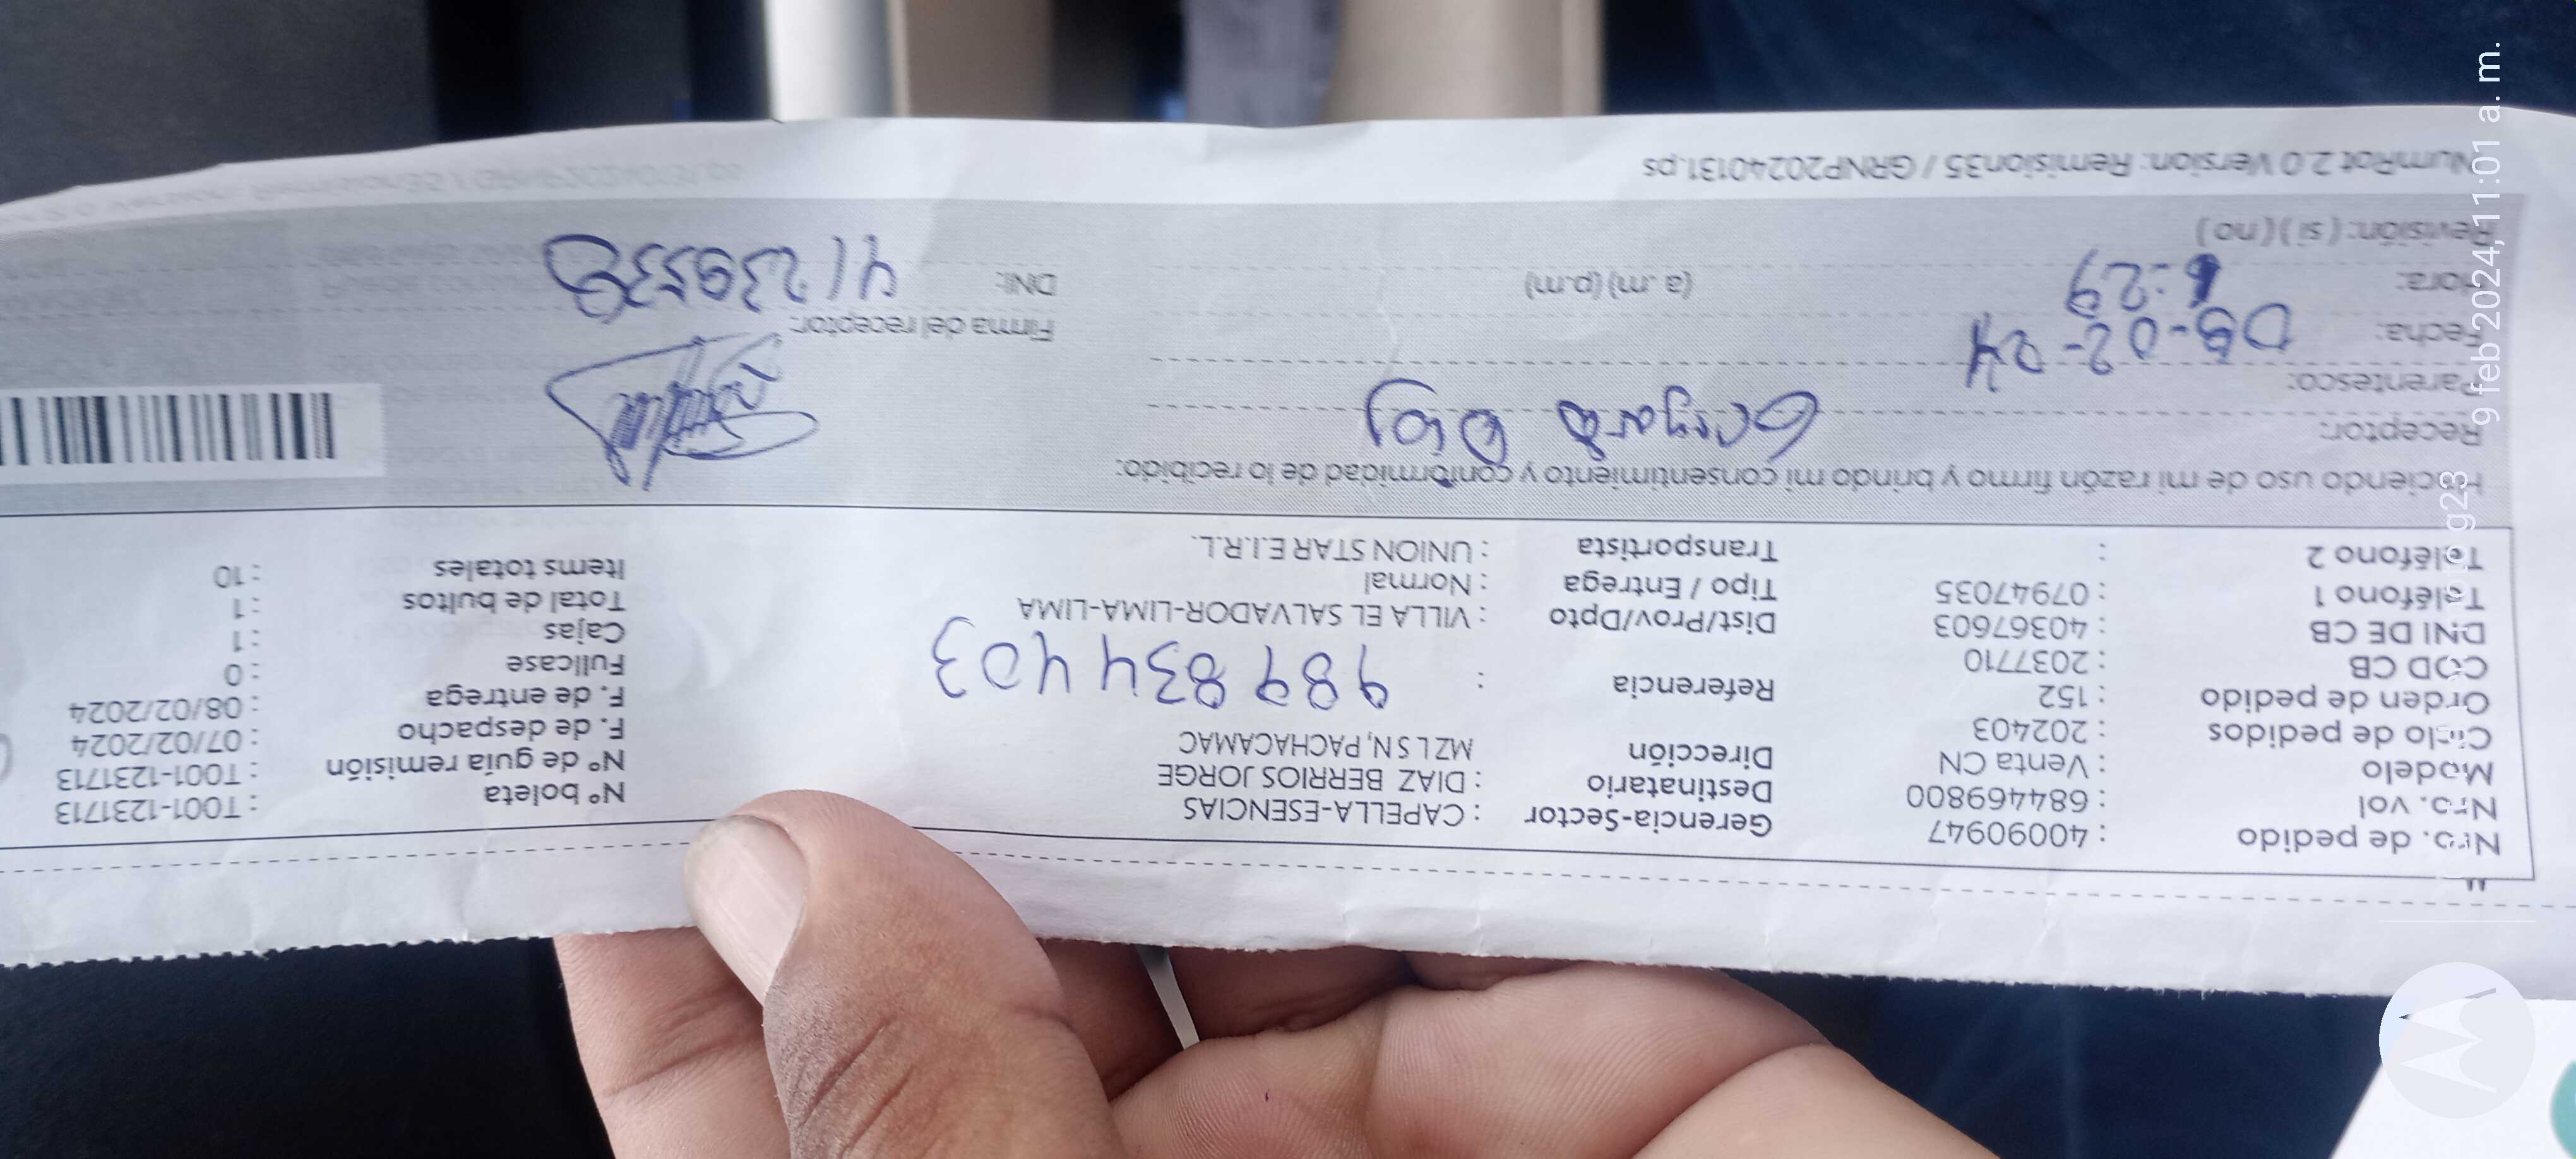 Nro. de pedido : 40090947 Gerencia-Sector : CAPELLA-ESENCIAS Nº boleta : T001-1231713
Nro. vol : 684469800 Destinatario : DIAZ BERRIOS JORGE Nº de guía remisión : T001-1231713
Modelo : Venta CN Dirección MZ L SN, PACHACAMAC F. de despacho : 07/02/2024
Ciclo de pedidos : 202403 F. de entrega : 08/02/2024
Orden de pedido : 152 Referencia : 989834403 Fullcase : 0
COD CB : 2037710 Cajas : 1
DNI DE CB : 40367603 Dist/Prov/Dpto : VILLA EL SALVADOR-LIMA-LIMA Total de bultos : 1
Teléfono 1 : 07947035 Tipo / Entrega : Normal Items totales : 10
Teléfono 2 : Transportista : UNION STAR E.I.R.L.
Haciendo uso de mi razón firmo y brindo mi consentimiento y conformidad de lo recibido:
Receptor:
Parentesco:
Fecha: 08-02-24 Firma del receptor:
Hora: :29 (a.m) (p.m) DNI: 41239538
Revisión: (si) (no)
NumRot 2.0 Version: Remision35 / GRNP20240131.ps
9 feb 2024, 11:01 a. m.